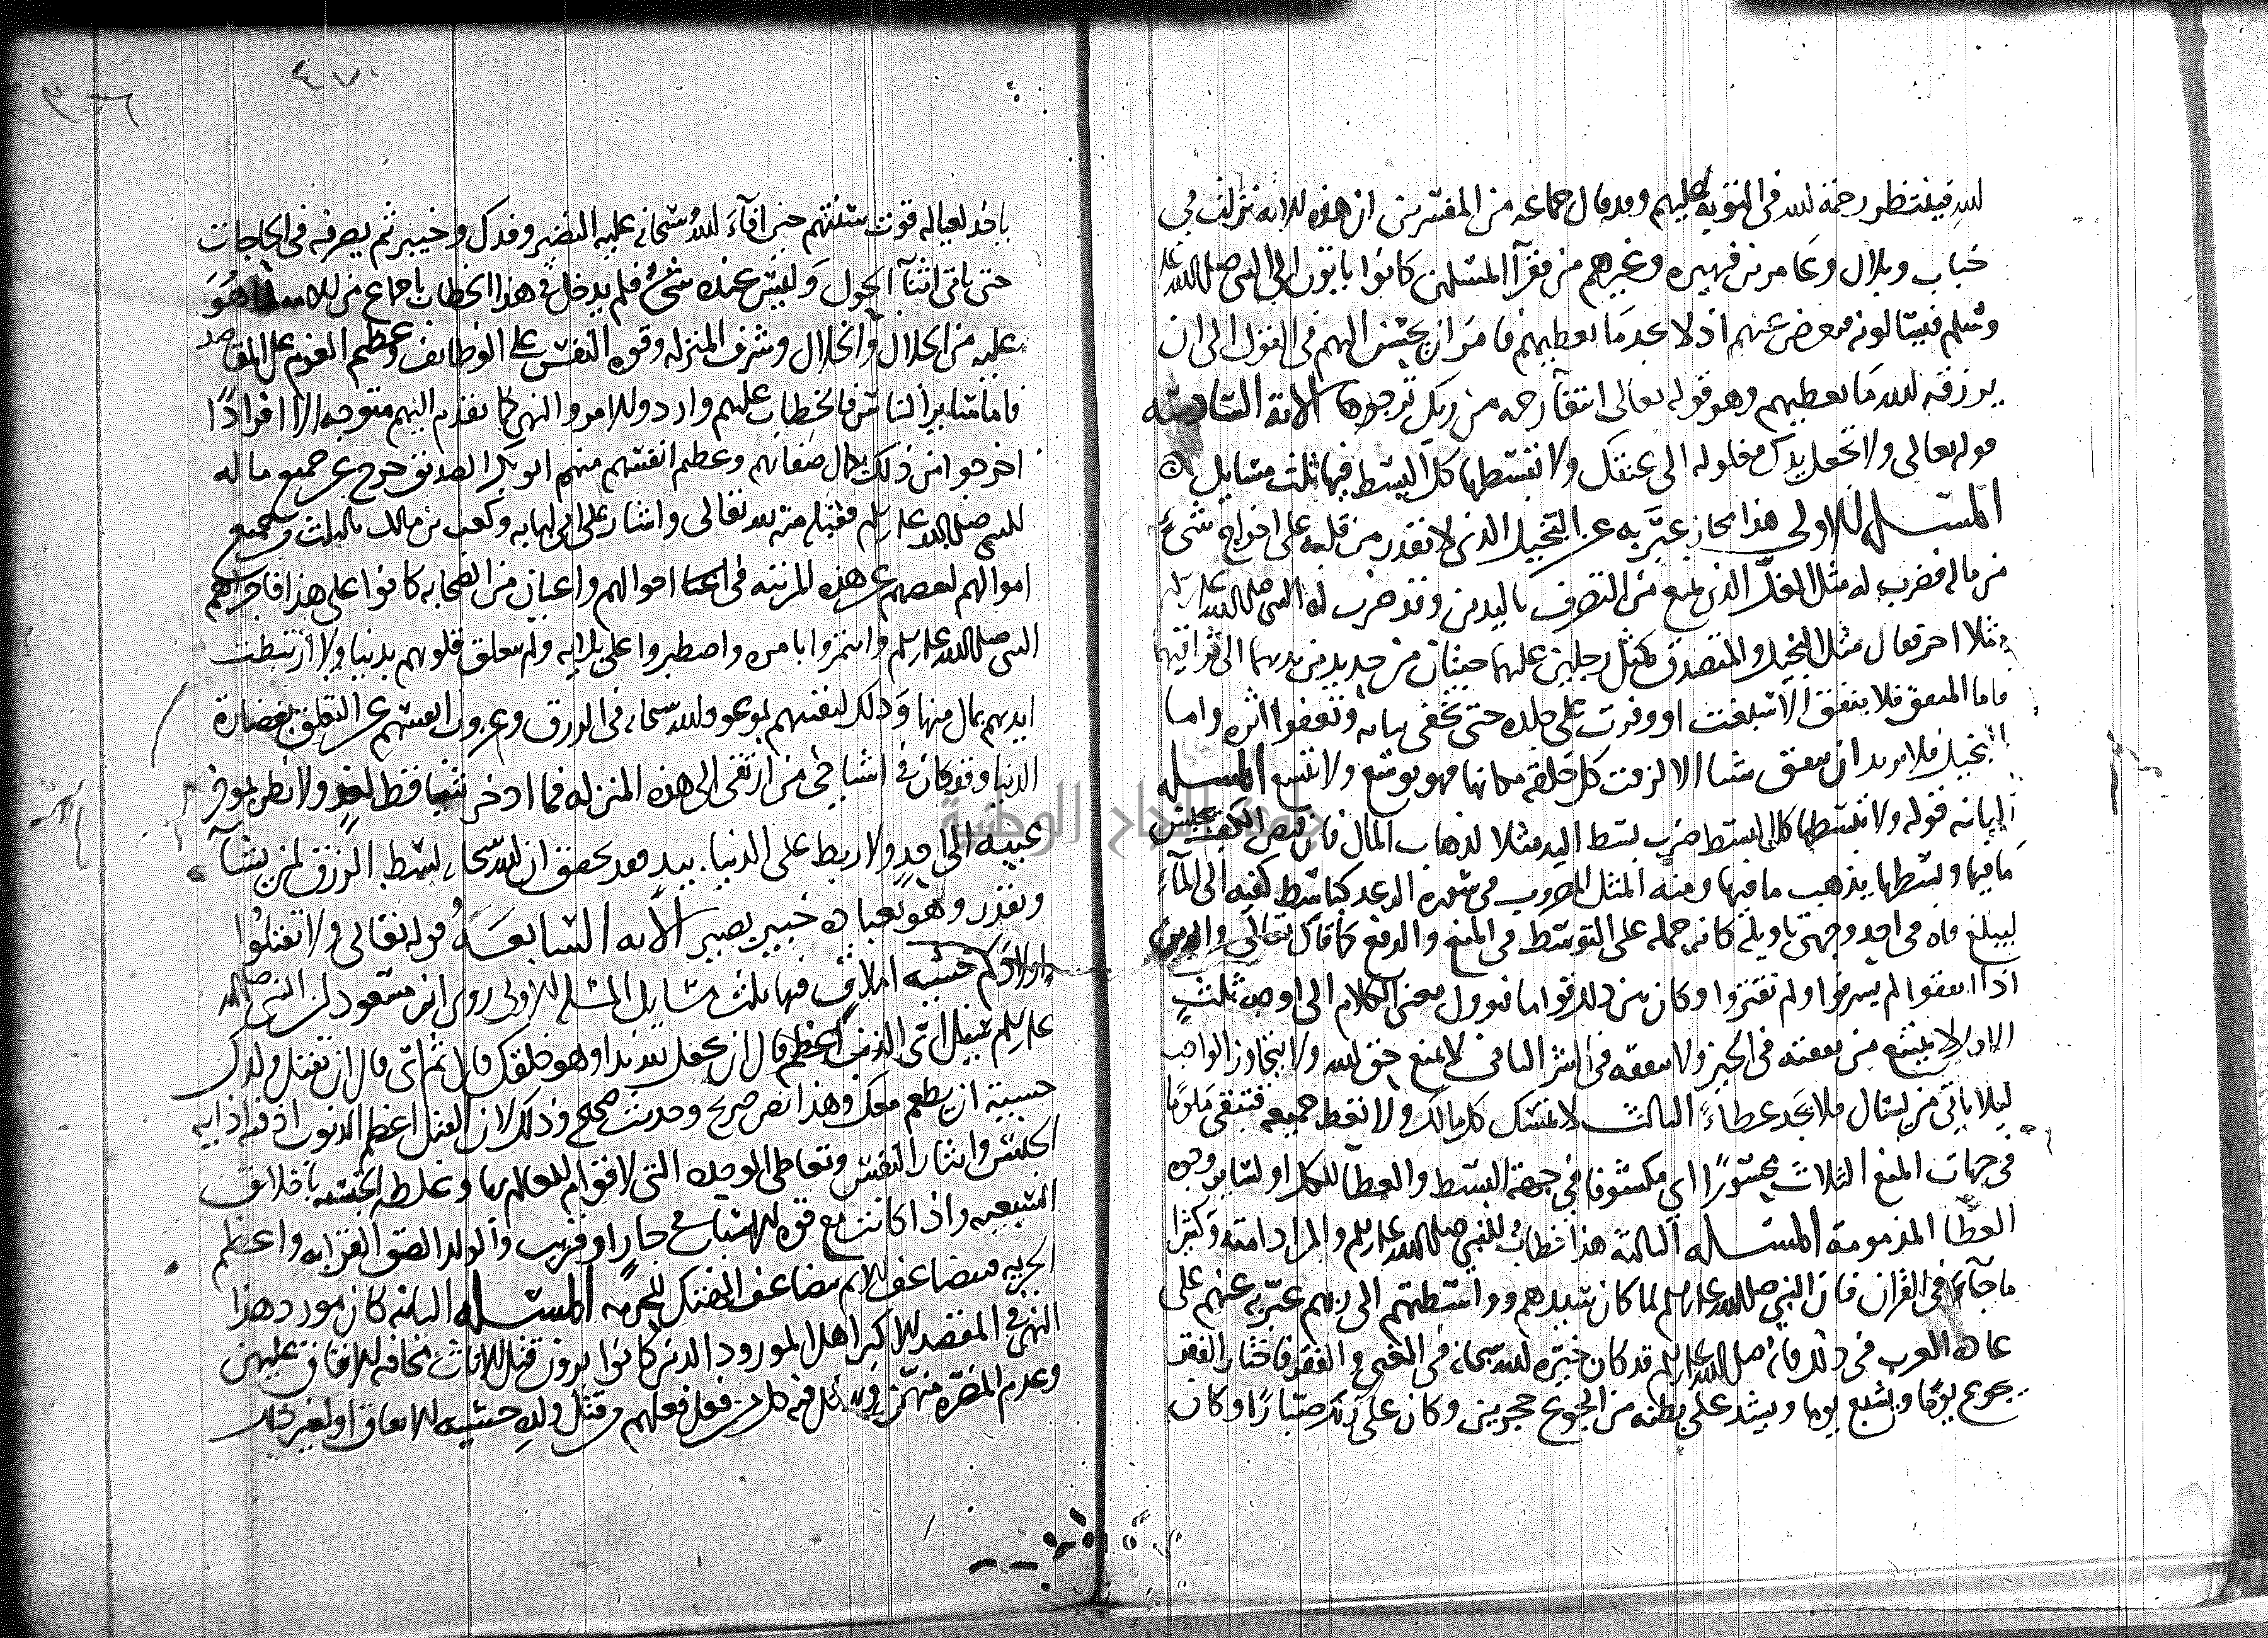 لله فينتظر رحمة الله في التوبة عليهم وقد قال جماعة من المفسرين ان هذه الاية نزلت في
خباب وبلال وعامر بن فهيرة وغيرهم من فقرآ المسلمين كانوا ياتون الى النبي صلى الله عليه
وسلم فيسالونه فيعرض عنهم اذ لا يجد ما يعطيهم فامر ان يحسن اليهم في القول الى ان
يرزقه الله ما يعطيهم وهو قوله تعالى ابتغآ رحمة من ربك ترجوها الاية السادسة
قوله تعالى ولا تجعل يدك مغلولة الى عنقك ولا تبسطها كل البسط فيها ثلث مسايل
المسلة الاولى هذا مجاز عبر به عن البخيل الذي لا يقدر من قلبه على اخراج شيء
من ماله فضرب له مثل الغل الذي يمنع من التصرف باليدين وقد ضرب له النبي صلى الله عليه وسلم
مثلا اخر فقال مثل البخيل والمتصدق كمثل رجلين عليهما جبتان من حديد من ثديهما الى تراقيهما
فاما المنفق فلا ينفق الا سبغت او وفرت على جلده حتى تخفى بنانه وتعفوا اثره واما
البخيل فلا يريد ان ينفق شيا الا لزقت كل حلقة مكانها فهو يوسع ولا تتسع المسلة
الثانية قوله ولا تبسطها كل البسط ضرب بسط اليد مثلا لذهاب المال فان قبض الكف يحبس
ما فيها وبسطها يذهب ما فيها ومنه المثل المضروب في سورة الرعد كباسط كفيه الى المآء
ليبلغ فاه في احد وجهي تاويله كانه حمله على التوسط في المنع والدفع كما قال تعالى والذين
اذا انفقوا لم يسرفوا ولم يقتروا وكان بين ذلك قواما فيوول معنى الكلام الى اوجه ثلث
الاول لا يمتنع من نفقته في الخير ولا ينفقه في الشر الثاني لا يمنع حق الله ولا يتجاوز الواجب
ليلا ياتي من يسال فلا يجد عطاء الثالث لا تمسك كل مالك ولا تعط جميعه فتبقى ملوما
في جهات المنع الثلاث محسورا اي مكشوفا في جهة البسط والعطا للكل او لساير وجوه
العطا المذمومة المسلة الثالثة هذا خطاب للنبي صلى الله عليه وسلم والمراد امته وكثيرا
ما جآء في القران فان النبي صلى الله عليه وسلم لما كان سيدهم وواسطتهم الى ربهم عبر به عنهم على
عادة العرب في ذلك فانه صلى الله عليه وسلم قد كان خيره الله سبحانه في الغنى والفقر فاختار الفقر
يجوع يوما ويشبع يوما ويشد على بطنه من الجوع حجرين وكان على ذلك صبارا وكان
ياخذ لعياله قوت سنتهم حين افآء الله سبحانه عليه النضير وفدك وخيبر ثم يصرفه في الحاجات
حتى ياتي اثنآ الحول وليس عنده شيء فلم يدخل في هذا الخطاب باجماع من الامة لما هو
عليه من الخلال والجلال وشرف المنزلة وقوة النفس على الوظايف وعظيم العزم على المقاصد
فاما ساير الناس فالخطاب عليهم وارد والامر والنهي كما تقدم اليهم متوجه الا افرادا
اخرجوا من ذلك بكمال صفاتهم وعظم انفسهم منهم ابو بكر الصديق خرج عن جميع ماله
للنبي صلى الله عليه وسلم فقبله منه لله تعالى واشار على ابي لبابة وكعب بن مالك بالثلث من جميع
اموالهم لنقصهم عن هذه المرتبة في احوالهم واعيان من الصحابة كانوا على هذا فاجراهم
النبي صلى الله عليه وسلم وايتمروا بامره واصطبروا على بلايه ولم تتعلق قلوبهم بدنيا ولا ارتبطت
ايديهم بمال منها وذلك لثقتهم بموعود الله سبحانه في الرزق وعزوف انفسهم عن التعلق بغضارة
الدنيا وقد كان في اشياخي من ارتقى الى هذه المنزلة فما ادخر شيا قط لغد ولا نظر بموخر
عينه الى احد ولا ربط على الدنيا بيد وقد تحقق ان الله سبحانه يبسط الرزق لمن يشآ
ويقدر وهو بعباده خبير بصير الاية السابعة قوله تعالى ولا تقتلوا
اولادكم خشية املاق فيها ثلث مسايل المسلة الاولى روى ابن مسعود ان النبي صلى الله
عليه وسلم سيل اي الذنب اعظم قال ان تجعل لله ندا وهو خلقك قال ثم اي قال ان تقتل ولدك
خشية ان يطعم معك وهذا نص صريح وحديث صحيح وذلك لان القتل اعظم الذنوب اذ فيه اذاية
الجنس وايثار النفس وتعاطي الوحدة التي لا قوام للعالم بها وغلظة الجنسية باخلاق
السبعية واذا كانت مع قوة الاسباب في جار او قريب والولد الصق القرابة واعظم
الحرمة فيتضاعف الاثم بتضاعف الهتك للحرمة المسلة الثانية كان مورد هذا
النهي في المقصد الاكبر اهل الموودة الذين كانوا يرون قتل الاناث مخافة الانفاق عليهن
وعدم النصرة منهن ويدخل فيه كل من فعل فعلهم من قتل ولده خشية الانفاق او لغير ذلك